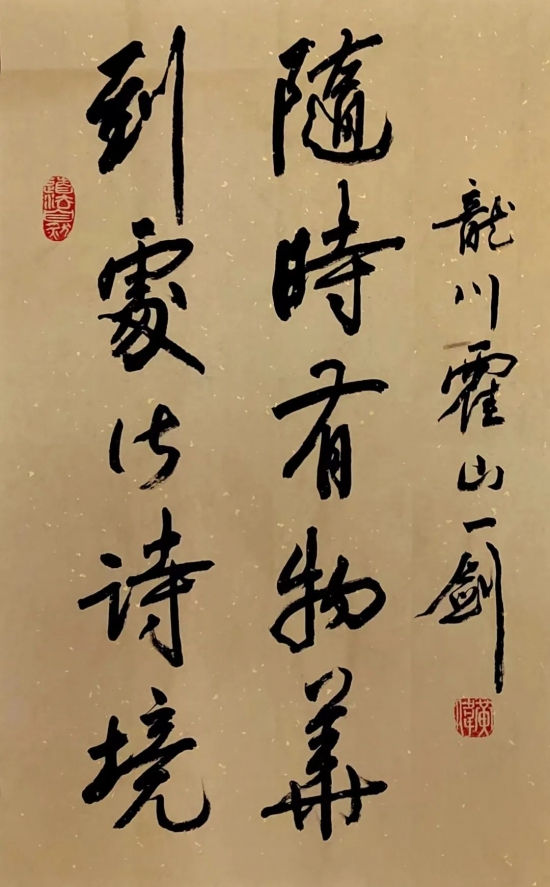 到處皆詩境
隨時有物華
龍川霍山一劍
黃偉